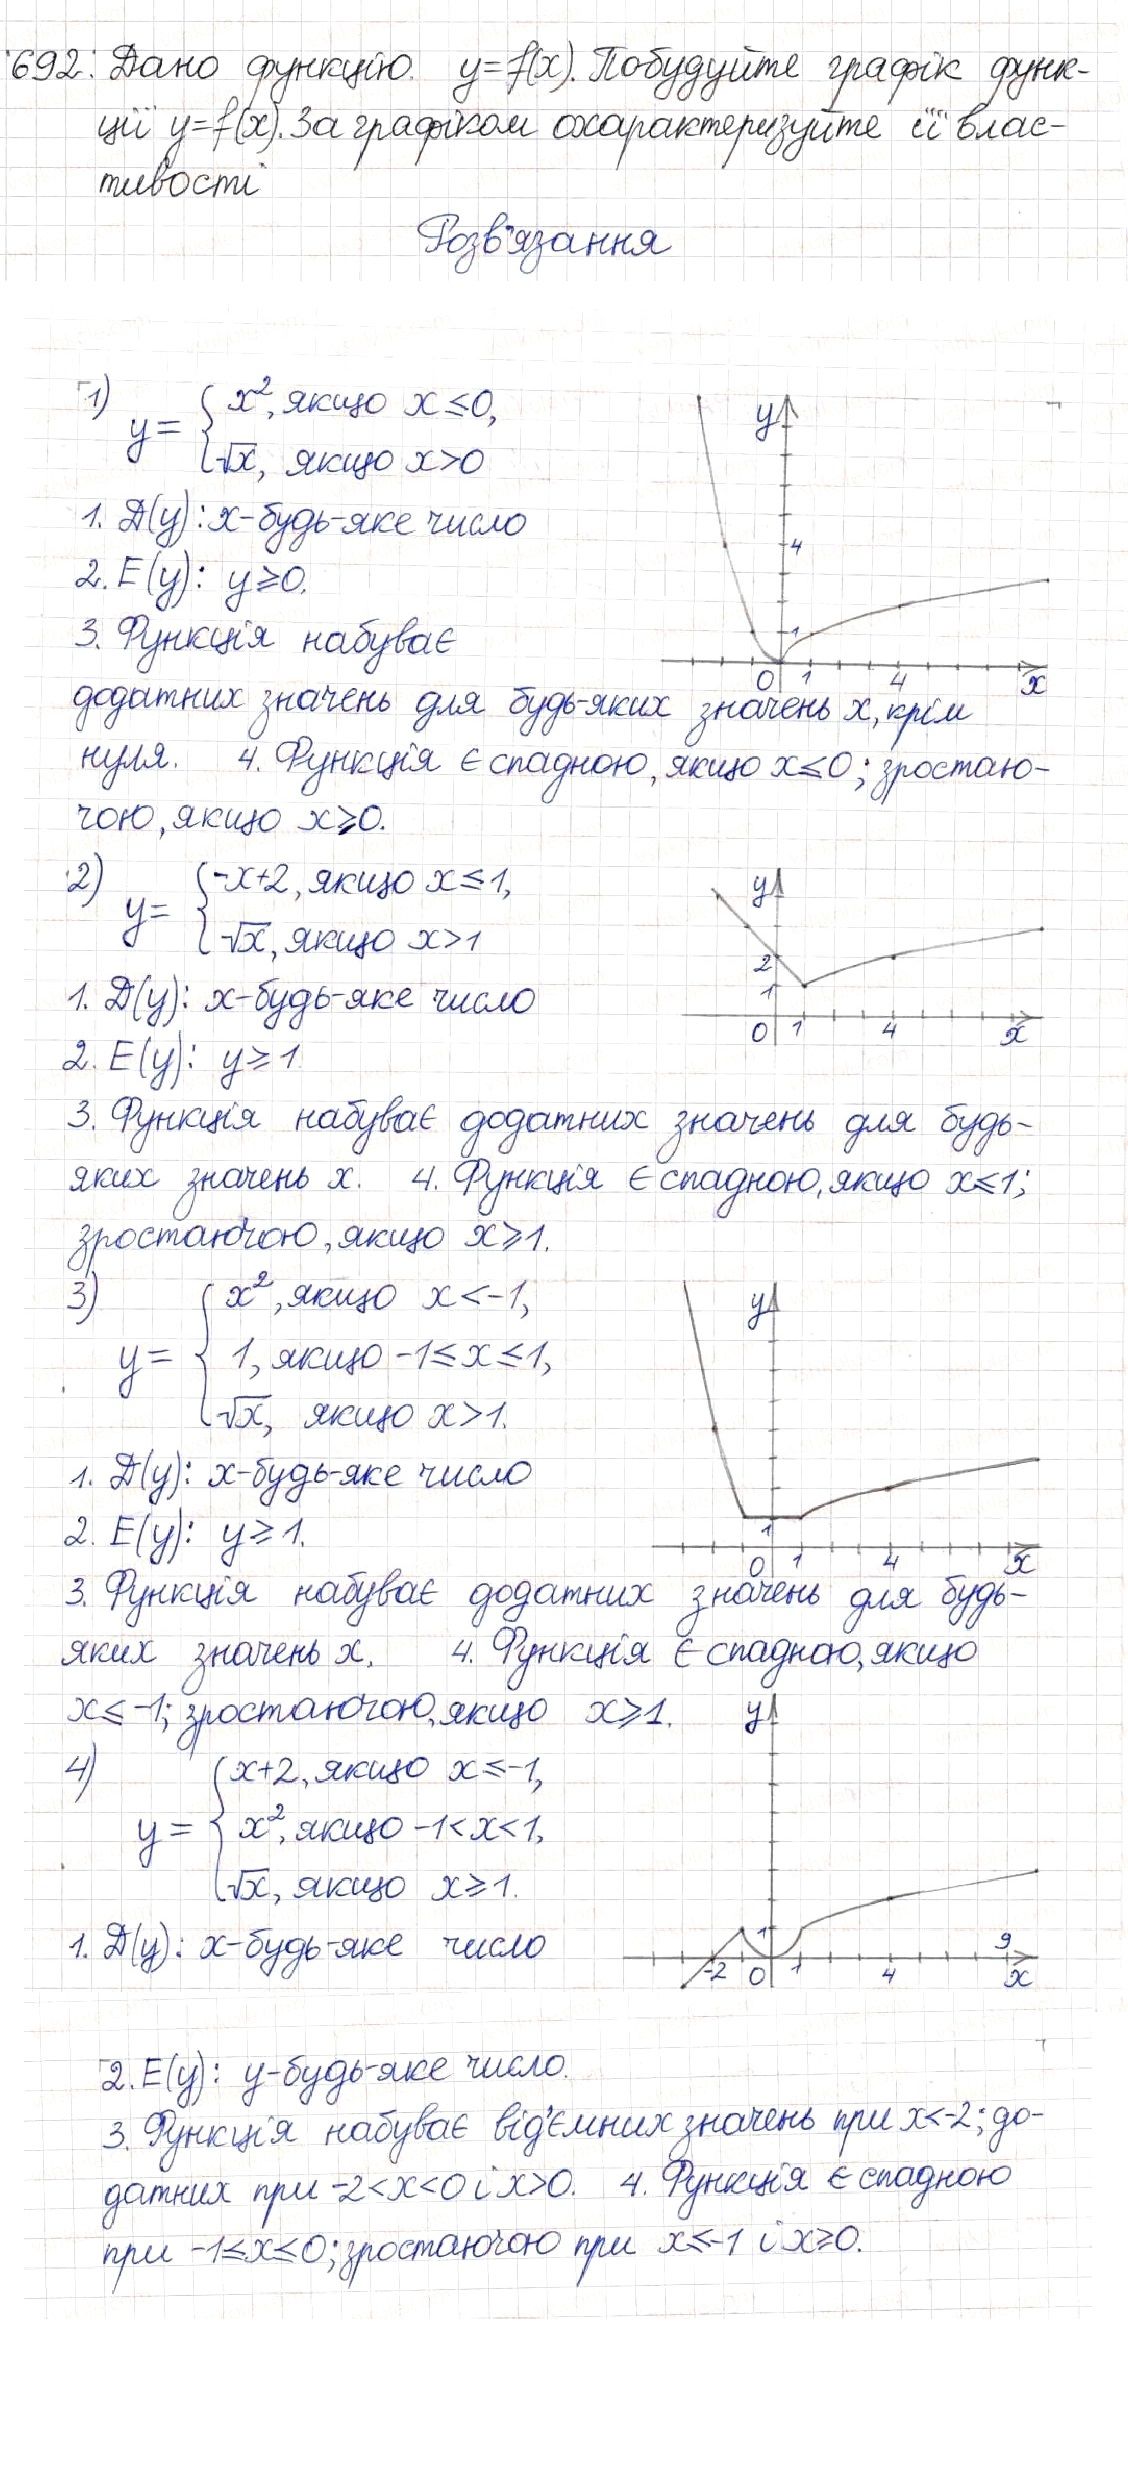 692. Дано функцію y=f(x). Побудуйте графік функ-
ції y=f(x). За графіком охарактеризуйте її влас-
тивості
Розв'язання
1) y= { x², якщо x≤0,
√x, якщо x>0
1. D(y): x-будь-яке число
2. E(y): y≥0.
3. Функція набуває
додатних значень для будь-яких значень x, крім
нуля. 4. Функція є спадною, якщо x≤0; зростаю-
чою, якщо x≥0.
y
4
1
0 1 4 x
2) y= { -x+2, якщо x≤1,
√x, якщо x>1
1. D(y): x-будь-яке число
2. E(y): y≥1
3. Функція набуває додатних значень для будь-
яких значень x. 4. Функція є спадною, якщо x≤1;
зростаючою, якщо x≥1.
y
2
1
0 1 4 x
3) y= { x², якщо x<-1,
1, якщо -1≤x≤1,
√x, якщо x>1.
1. D(y): x-будь-яке число
2. E(y): y≥1.
3. Функція набуває додатних значень для будь-
яких значень x. 4. Функція є спадною, якщо
x≤-1; зростаючою, якщо x≥1.
y
1
0 1 4 x
4) y= { x+2, якщо x≤-1,
x², якщо -1<x<1,
√x, якщо x≥1.
1. D(y): x-будь-яке число
y
1
9
-2 0 1 4 x
2. E(y): y-будь-яке число.
3. Функція набуває від'ємних значень при x<-2; до-
датних при -2<x<0 і x>0. 4. Функція є спадною
при -1≤x≤0; зростаючою при x≤-1 і x≥0.